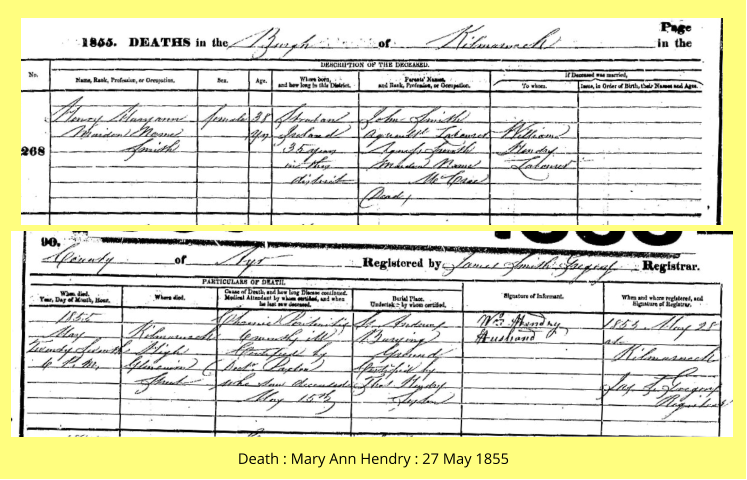 Page
1855. DEATHS in the Burgh of Kilmarnock in the
DESCRIPTION OF THE DECEASED.
No.
Name, Rank, Profession, or Occupation.
Sex.
Age.
Where born, and how long in this District.
Parents' Names, and Rank, Profession, or Occupation.
If Deceased was married,
To whom.
Issue, in Order of Birth, their Names and Ages.
268
Henry Maryann
Maiden Name
Smith
female
38
yrs
Ireland
35 years
in this
district
John Smith
Labourer
Smith
Maiden Name
(Dead)
William
Hendry
Labourer
90.
County of Ayr
Registered by James Smith Registrar.
PARTICULARS OF DEATH.
When died. Year, Day of Month, Hour.
Where died.
Cause of Death, and how long Disease continued. Medical Attendant by whom certified, and when he last saw deceased.
Burial Place. Undertaker by whom certified.
Signature of Informant.
When and where registered, and Signature of Registrar.
1855
May
Twenty Seventh
6 P.M.
Kilmarnock
High
Glencairn
Street
Certified by
who saw deceased
May 15th
St Andrews
Burying
Ground
Certified by
Thos Hendry
Sexton
Wm Hendry
Husband
1855 May 28
at
Kilmarnock
Registrar
Death : Mary Ann Hendry : 27 May 1855